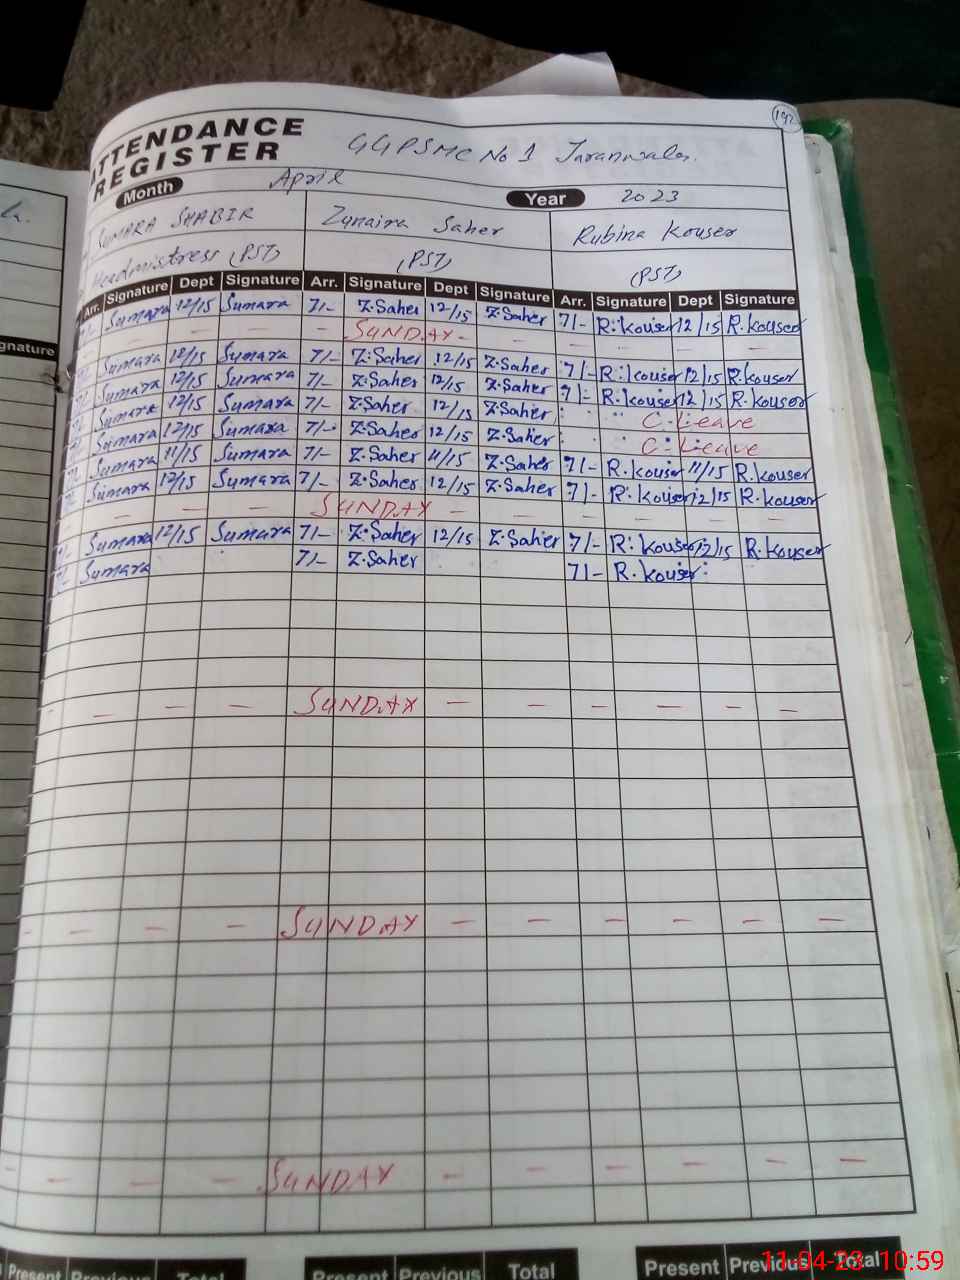 192
ATTENDANCE
REGISTER
GGPSMC No 1 Jaranwala.
Month April Year 2023
SUMARA SHABIR Zunaira Saher Rubina Kouser
Headmistress (PST) (PST) (PST)
Arr. Signature Dept Signature Arr. Signature Dept Signature Arr. Signature Dept Signature
gnature
7/- Sumara 12/15 Sumara 7/- Z.Saher 12/15 Z.Saher 7/- R.kouser 12/15 R.kouser
- - - - SUNDAY - - - - - -
7/- Sumara 12/15 Sumara 7/- Z.Saher 12/15 Z.Saher 7/- R.kouser 12/15 R.kouser
7/- Sumara 12/15 Sumara 7/- Z.Saher 12/15 Z.Saher 7/- R.kouser 12/15 R.kouser
7/- Sumara 12/15 Sumara 7/- Z.Saher 12/15 Z.Saher C.Leave
7/- Sumara 12/15 Sumara 7/- Z.Saher 12/15 Z.Saher C.Leave
7/- Sumara 11/15 Sumara 7/- Z.Saher 11/15 Z.Saher 7/- R.kouser 11/15 R.kouser
7/- Sumara 12/15 Sumara 7/- Z.Saher 12/15 Z.Saher 7/- R.kouser 12/15 R.kouser
- - - - SUNDAY - - - - - -
7/- Sumara 12/15 Sumara 7/- Z.Saher 12/15 Z.Saher 7/- R.kouser 12/15 R.kouser
7/- Sumara 7/- Z.Saher 7/- R.kouser
- - - - SUNDAY - - - - - -
- - - - SUNDAY - - - - - -
- - - - SUNDAY - - - - - -
Present Previous Total Present Previous Total Present Previous Total
11-04-23 10:59